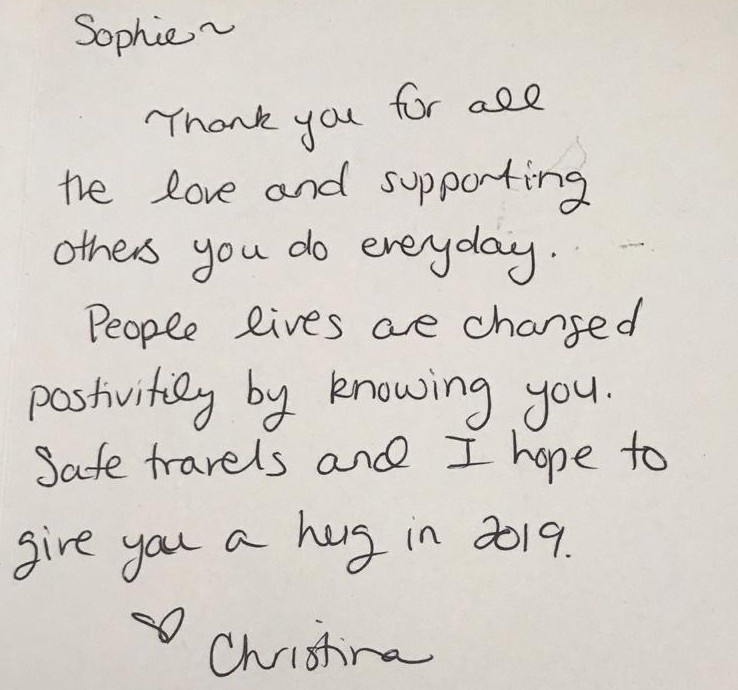 Sophie~
Thank you for all
the love and supporting
others you do everyday.
People lives are changed
postivitily by knowing you.
Safe travels and I hope to
give you a hug in 2019.
♡ Christina